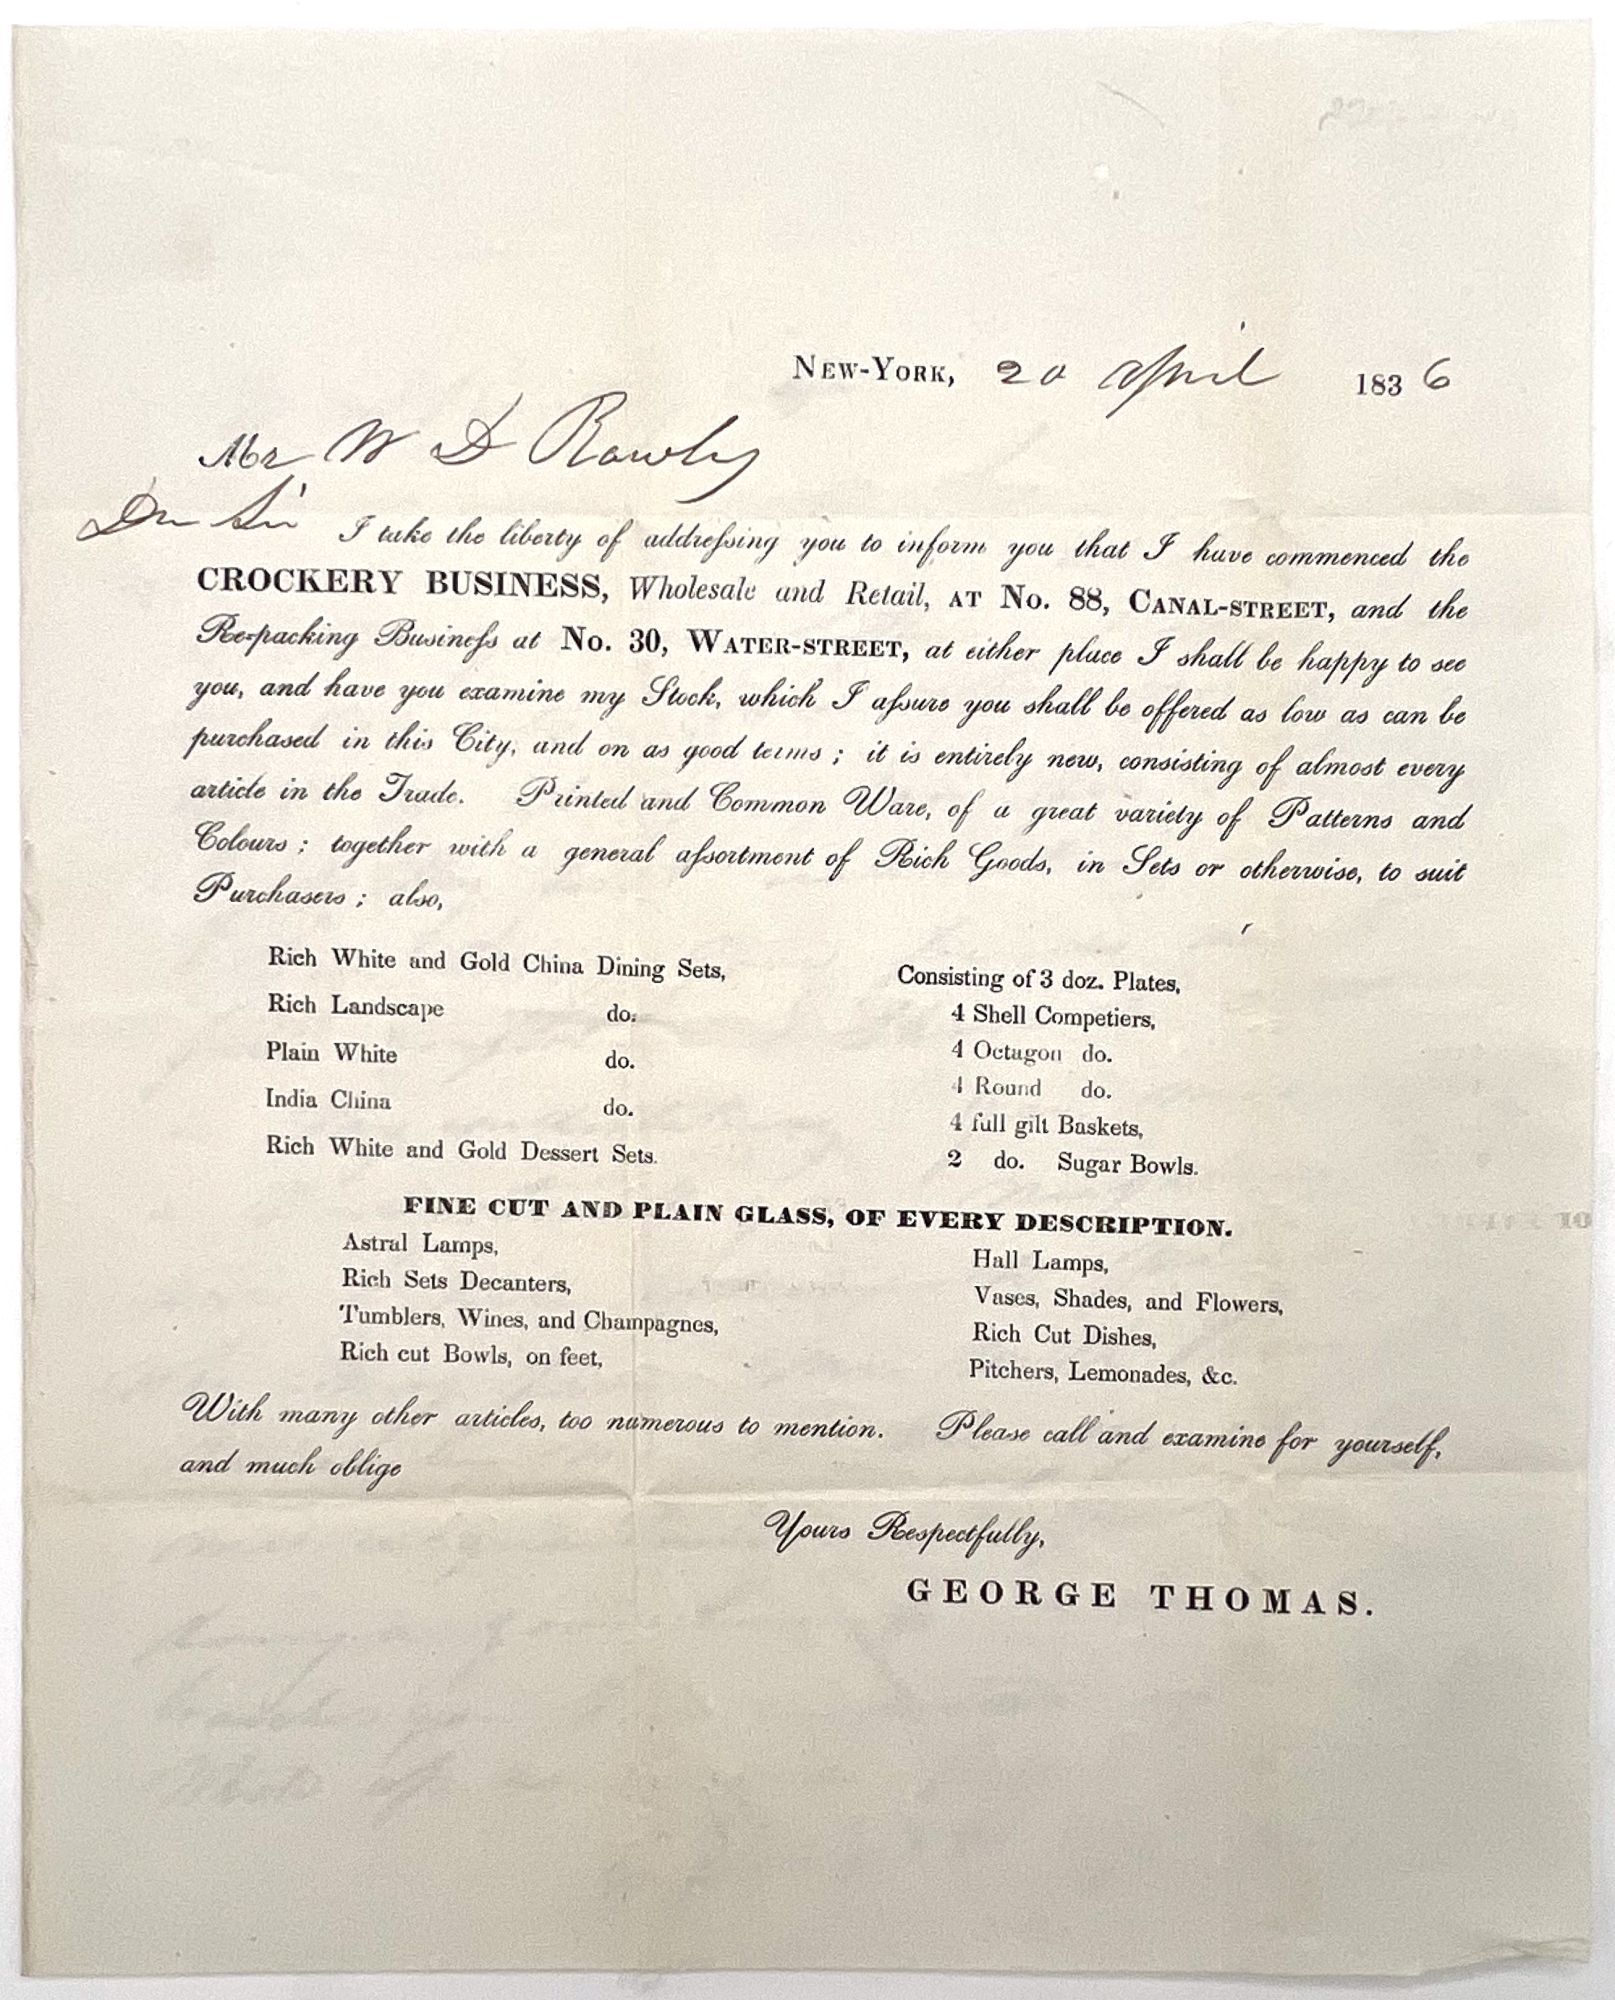 New-York, 20 April 1836
Mr W D Rowly
Dr Sir I take the liberty of addreſsing you to inform you that I have commenced the
CROCKERY BUSINESS, Wholesale and Retail, at No. 88, Canal-street, and the
Re-packing Busineſs at No. 30, Water-street, at either place I shall be happy to see
you, and have you examine my Stock, which I aſsure you shall be offered as low as can be
purchased in this City, and on as good terms; it is entirely new, consisting of almost every
article in the Trade. Printed and Common Ware, of a great variety of Patterns and
Colours; together with a general aſsortment of Rich Goods, in Sets or otherwise, to suit
Purchasers; also,
Rich White and Gold China Dining Sets,
Rich Landscape do.
Plain White do.
India China do.
Rich White and Gold Dessert Sets.
Consisting of 3 doz. Plates,
4 Shell Competiers,
4 Octagon do.
4 Round do.
4 full gilt Baskets,
2 do. Sugar Bowls.
FINE CUT AND PLAIN GLASS, OF EVERY DESCRIPTION.
Astral Lamps,
Rich Sets Decanters,
Tumblers, Wines, and Champagnes,
Rich cut Bowls, on feet,
Hall Lamps,
Vases, Shades, and Flowers,
Rich Cut Dishes,
Pitchers, Lemonades, &c.
With many other articles, too numerous to mention. Please call and examine for yourself,
and much oblige
Yours Respectfully,
GEORGE THOMAS.